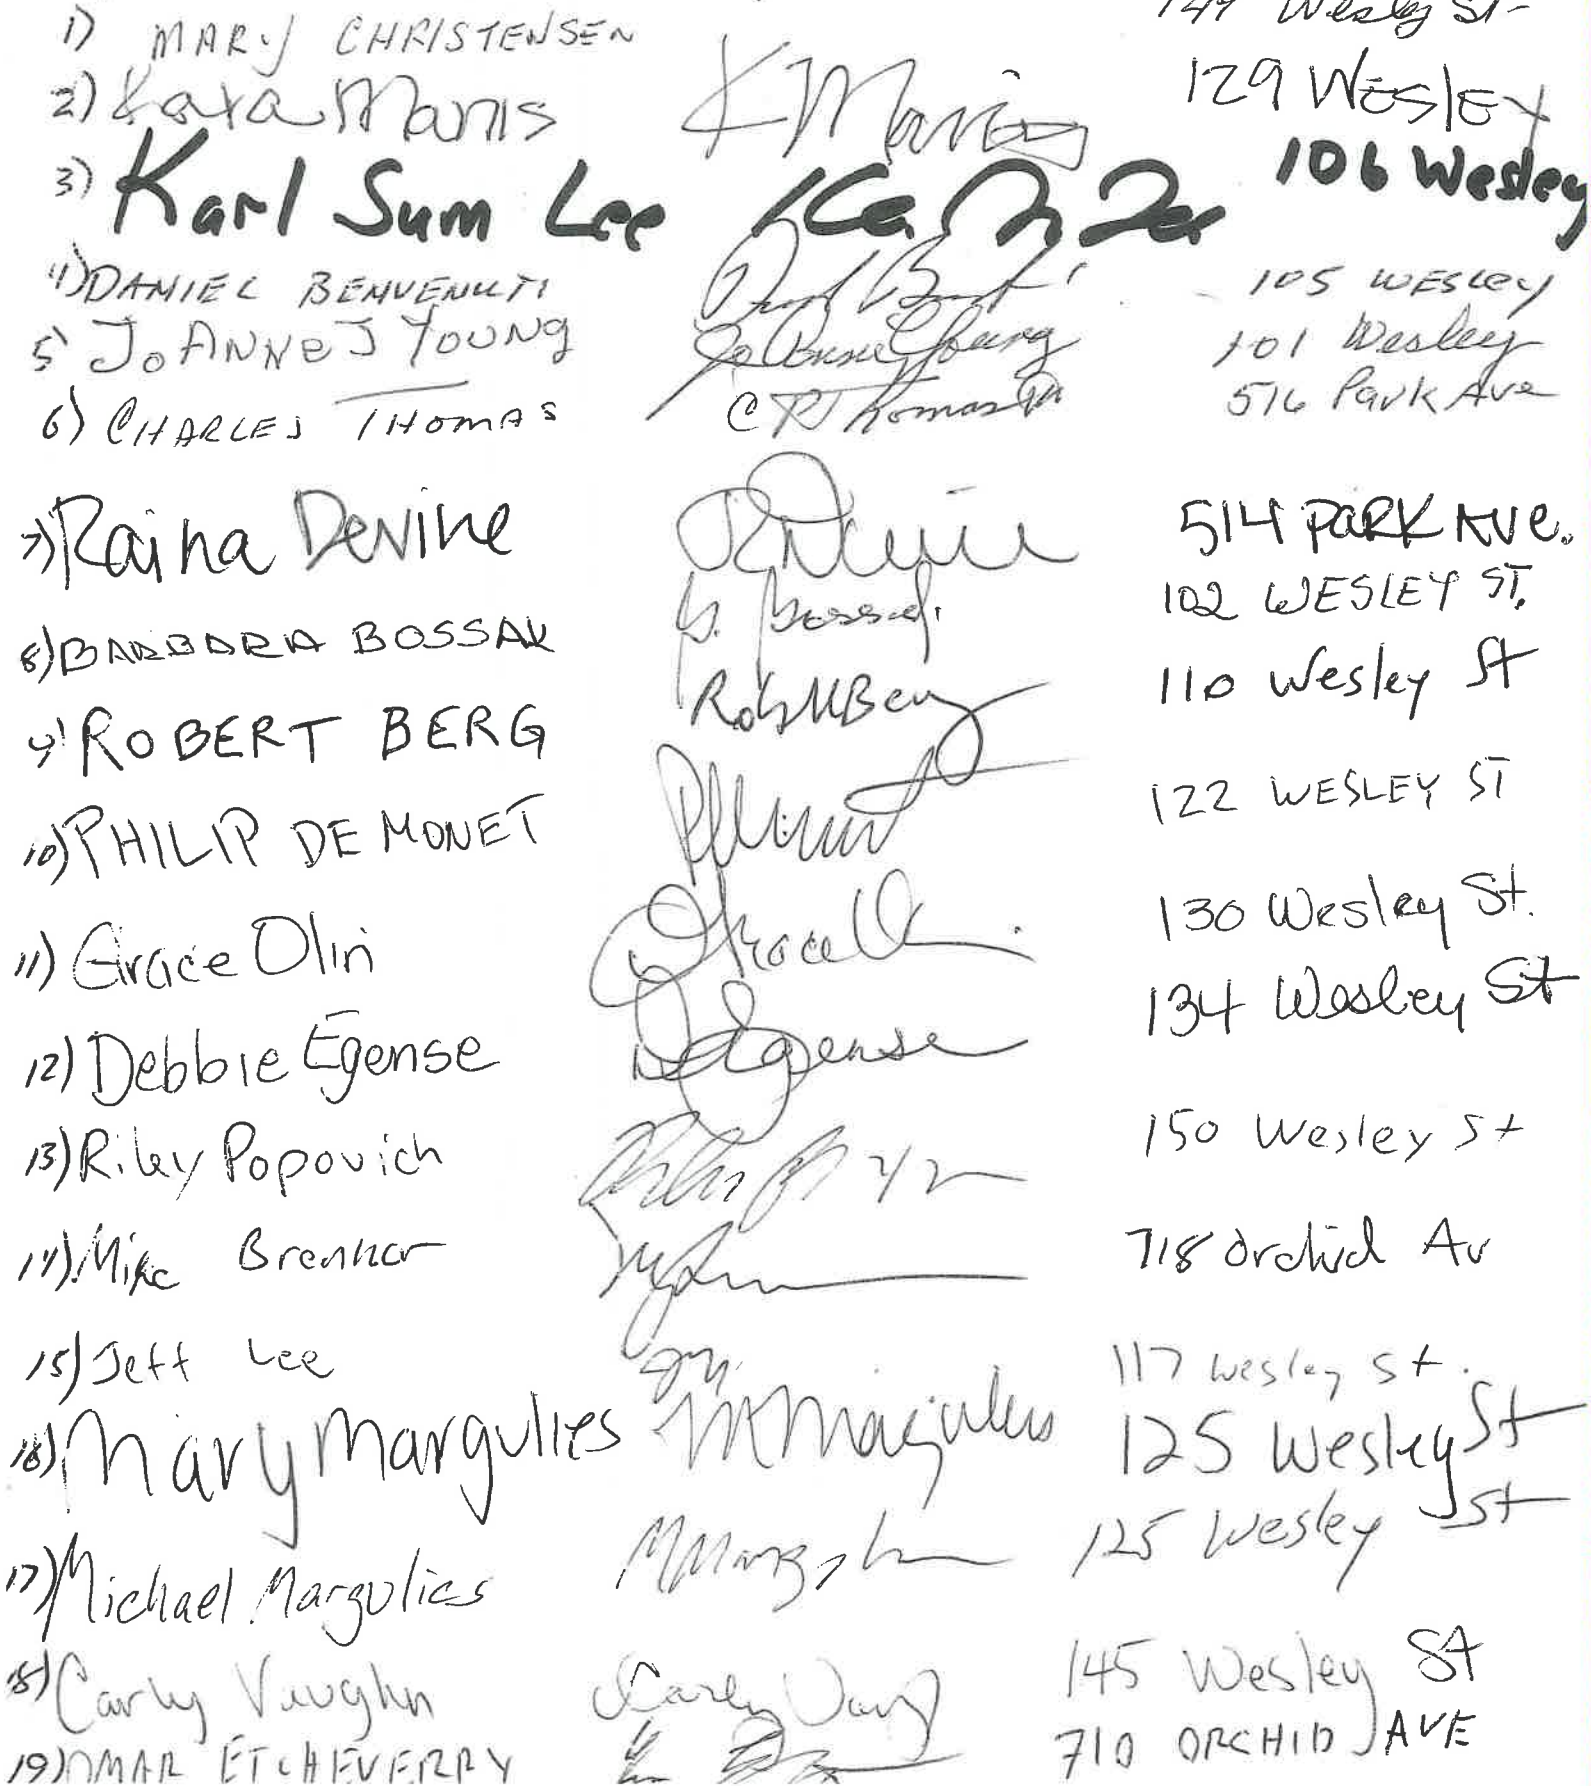 1) MARY CHRISTENSEN 149 Wesley St-
2) Kara Manis K Manis 129 WESLEY
3) Karl Sum Lee 106 Wesley
4) DANIEL BENVENUTI 105 WESLEY
5) JoANNe J YOUNG Jo Anne J Young 101 Wesley
6) CHARLES THOMAS C R Thomas 516 Park Ave
7) Raina Devine R Devine 514 PARK AVE.
8) BARBARA BOSSAK B. Bossak 102 WESLEY ST.
9) ROBERT BERG Robt M Berg 110 Wesley St
10) PHILIP DE MONET 122 WESLEY ST
11) Grace Olin 130 Wesley St.
12) Debbie Egense D Egense 134 Wesley St
13) Riley Popovich 150 Wesley St
14) Mike Brennar 718 Orchid Av
15) Jeff Lee 117 Wesley St.
16) Mary Margulies M Margulies 125 Wesley St
17) Michael Margulies 125 Wesley St
18) Carly Vaughn Carly Vaug 145 Wesley St
19) OMAR ETCHEVERRY 710 ORCHID AVE